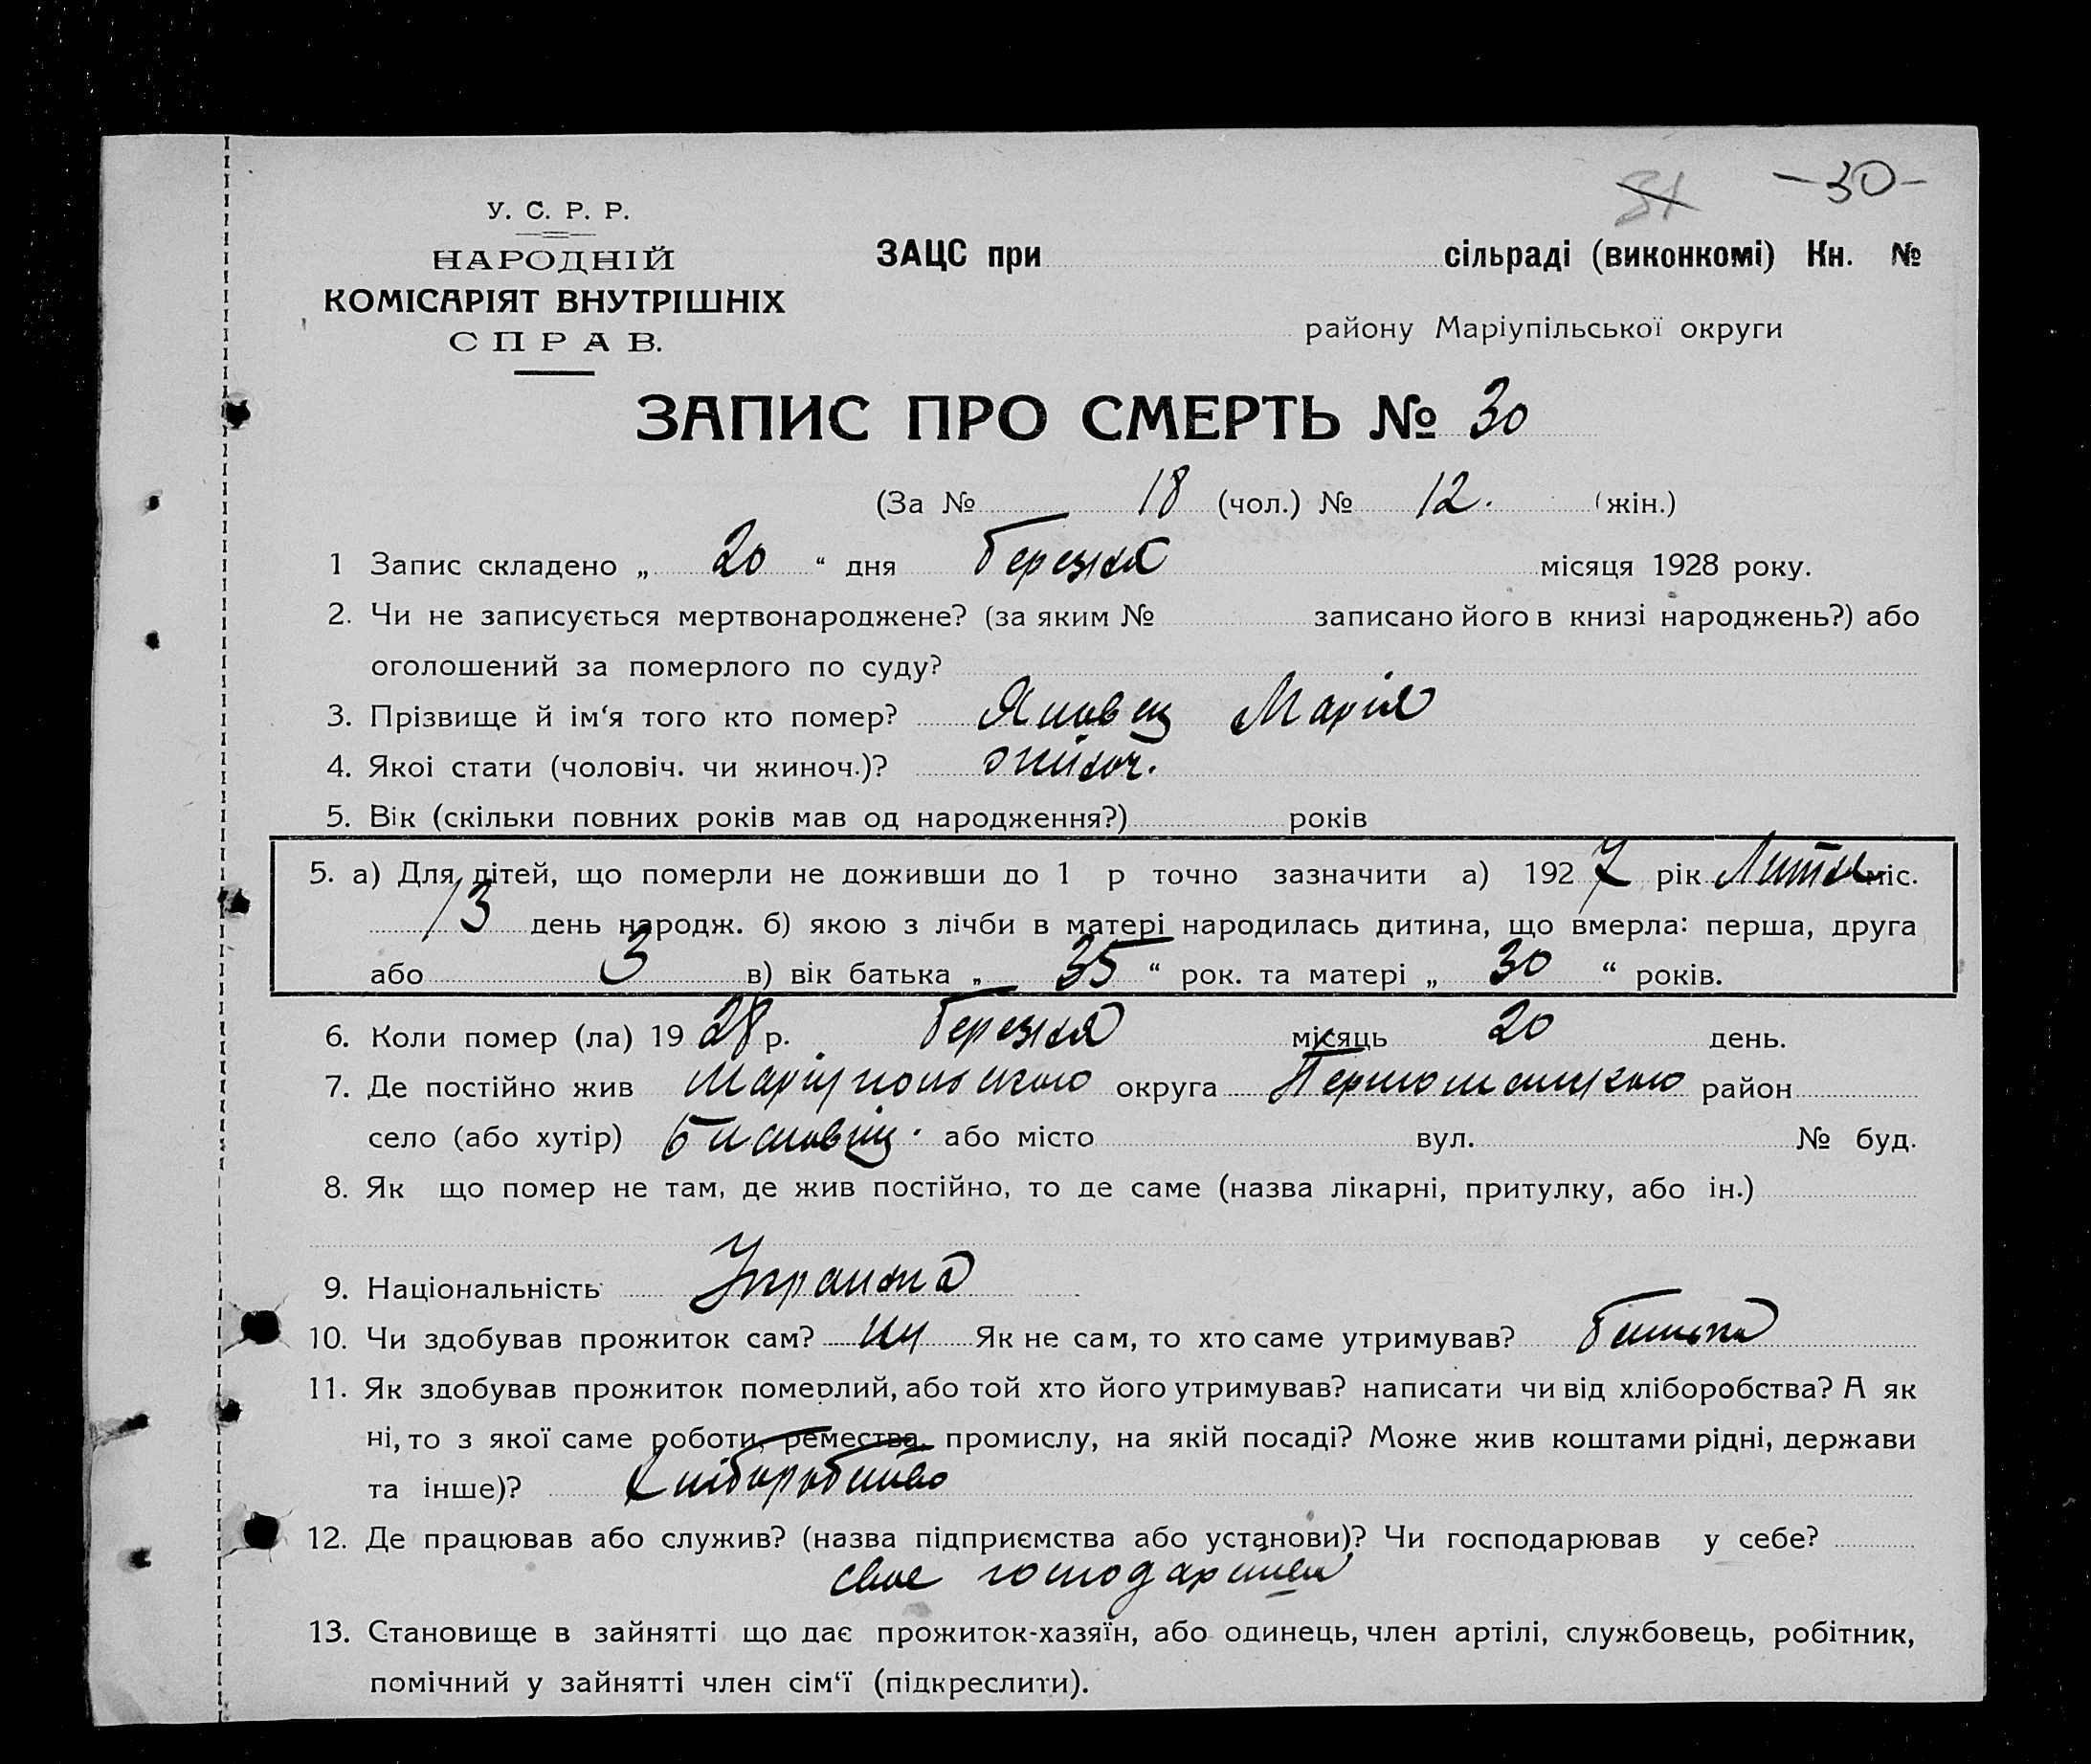 31 -30-
У. С. Р. Р.
НАРОДНІЙ
КОМІСАРІЯТ ВНУТРІШНІХ
СПРАВ.
ЗАЦС при сільраді (виконкомі) Кн. №
району Маріупільської округи
ЗАПИС ПРО СМЕРТЬ № 30
(За № 18 (чол.) № 12. (жін.)
1 Запис складено „ 20 “ дня березня місяця 1928 року.
2. Чи не записується мертвонароджене? (за яким № записано його в книзі народжень?) або
оголошений за померлого по суду?
3. Прізвище й ім‘я того кто помер? Яковец Марія
4. Якоі стати (чоловіч. чи жиноч.)? жіноч.
5. Вік (скільки повних років мав од народження?) років
5. а) Для дітей, що померли не доживши до 1 р точно зазначити а) 1927 рік Лютня міс.
13 день народж. б) якою з лічби в матері народилась дитина, що вмерла: перша, друга
або 3 в) вік батька „ 35 “ рок. та матері „ 30 “ років.
6. Коли помер (ла) 1928 р. березня місяць 20 день.
7. Де постійно жив округа район
село (або хутір) або місто вул. № буд.
8. Як що помер не там, де жив постійно, то де саме (назва лікарні, притулку, або ін.)
9. Національність Українка
10. Чи здобував прожиток сам? ні Як не сам, то хто саме утримував? батько
11. Як здобував прожиток померлий, або той хто його утримував? написати чи від хліборобства? А як
ні, то з якої саме роботи, ремества, промислу, на якій посаді? Може жив коштами рідні, держави
та інше)? Хліборобство
12. Де працював або служив? (назва підприємства або установи)? Чи господарював у себе?
своє господарство
13. Становище в зайнятті що дає прожиток-хазяїн, або одинець, член артілі, службовець, робітник,
помічний у зайнятті член сім‘ї (підкреслити).